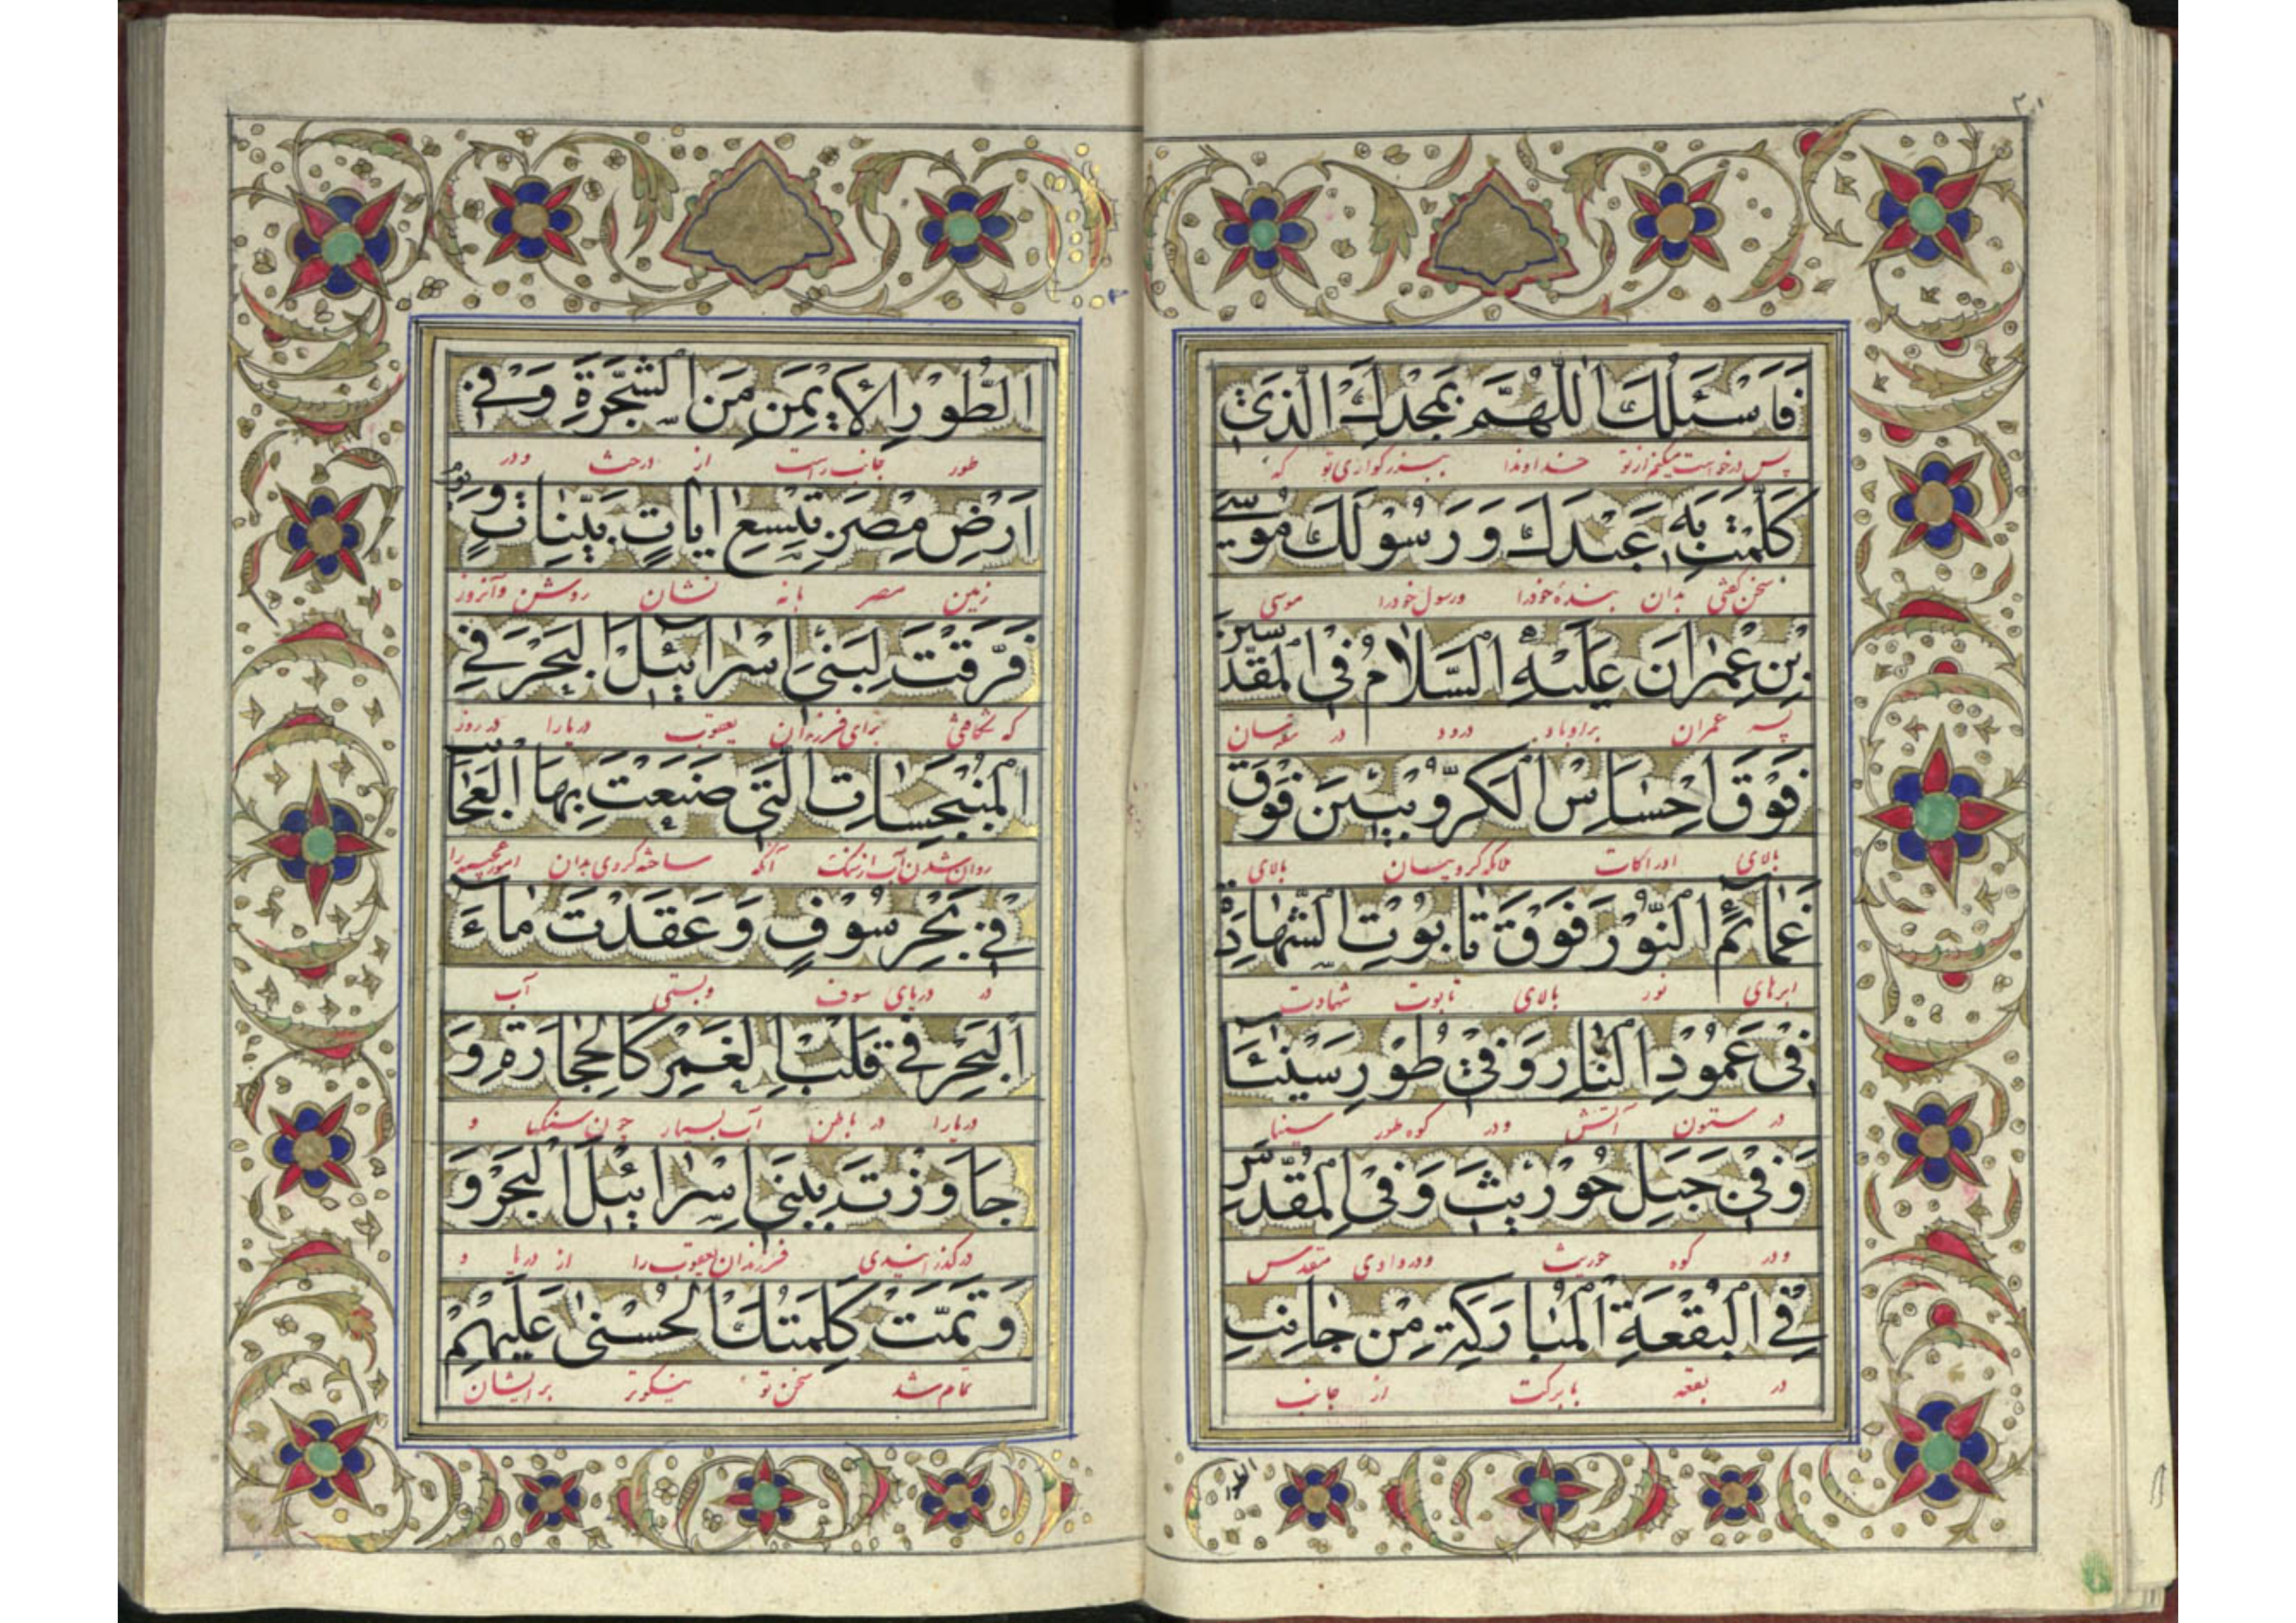 ۲۱
فَاَسْئَلُكَ اللّٰهُمَّ بِمَجْدِكَ الَّذى
پس درخواست میکنم از تو خداوندا ببزرگواری تو که
كَلَّمْتَ بِهِ عَبْدَكَ وَ رَسُوْلَكَ مُوسٰى
سخن گفتی بدان بندهٔ خودرا ورسول خودرا موسی
بْنِ عِمْرٰانَ عَلَيْهِ السَّلامُ فِى الْمُقَدَّسينَ
پسر عمران براوباد درود در
فَوْقَ اِحْسٰاسِ الْكَرُّوبيّينَ فَوْقَ
بالای ادراکات ملائکه کروبیان بالای
غَمٰائِمِ النُّوْرِ فَوْقَ تابُوْتِ الشَّهٰادَةِ
ابرهای نور بالای تابوت شهادت
فى عَمُوْدِ النّٰارِ وَ فى طُوْرِ سَيْنٰآءَ
در ستون آتش ودر کوه طور سینا
وَفى جَبَلِ حُوْريثَ وَفِى الْوادِ الْمُقَدَّسِ
ودر کوه حوریث ودر وادی مقدس
فِى الْبُقْعَةِ الْمُبٰارَكَةِ مِنْ جٰانِبِ
در بقعه بابرکت از جانب
الطور
الطُّوْرِ الْاَيْمَنِ مِنَ الشَّجَرَةِ وَ فى
طور جانب راست از درخت ودر
اَرْضِ مِصْرَ بِتِسْعِ اٰيٰاتٍ بَيِّنٰاتٍ وَ يَوْمَ
زمین مصر بانه نشان روشن وآنروز
فَرَقْتَ لِبَنى اِسْرٰائيلَ الْبَحْرَ وَ فِى
که شکافتی برای فرزندان یعقوب دریارا در روز
الْمُنْبَجِسٰاتِ الَّتى صَنَعْتَ بِهَا الْعَجٰائِبَ
روان شدن آب از سنگ آنکه ساخته کردی بدان امور عجیبه را
فى بَحْرِ سُوْفٍ وَ عَقَدْتَ مٰاءَ
در دریای سوف وبستی آب
الْبَحْرِ فى قَلْبِ الْغَمْرِ كَالْحِجٰارَةِ وَ
دریارا در باطن آب بسیار چون سنگ و
جٰاوَزْتَ بِبَنى اِسْرٰائيلَ الْبَحْرَ وَ
درگذرانیدی فرزندان یعقوب را از دریا و
وَ تَمَّتْ كَلِمَتُكَ الْحُسْنٰى عَلَيْهِمْ
تمام شد سخن تو نیکوتر برایشان